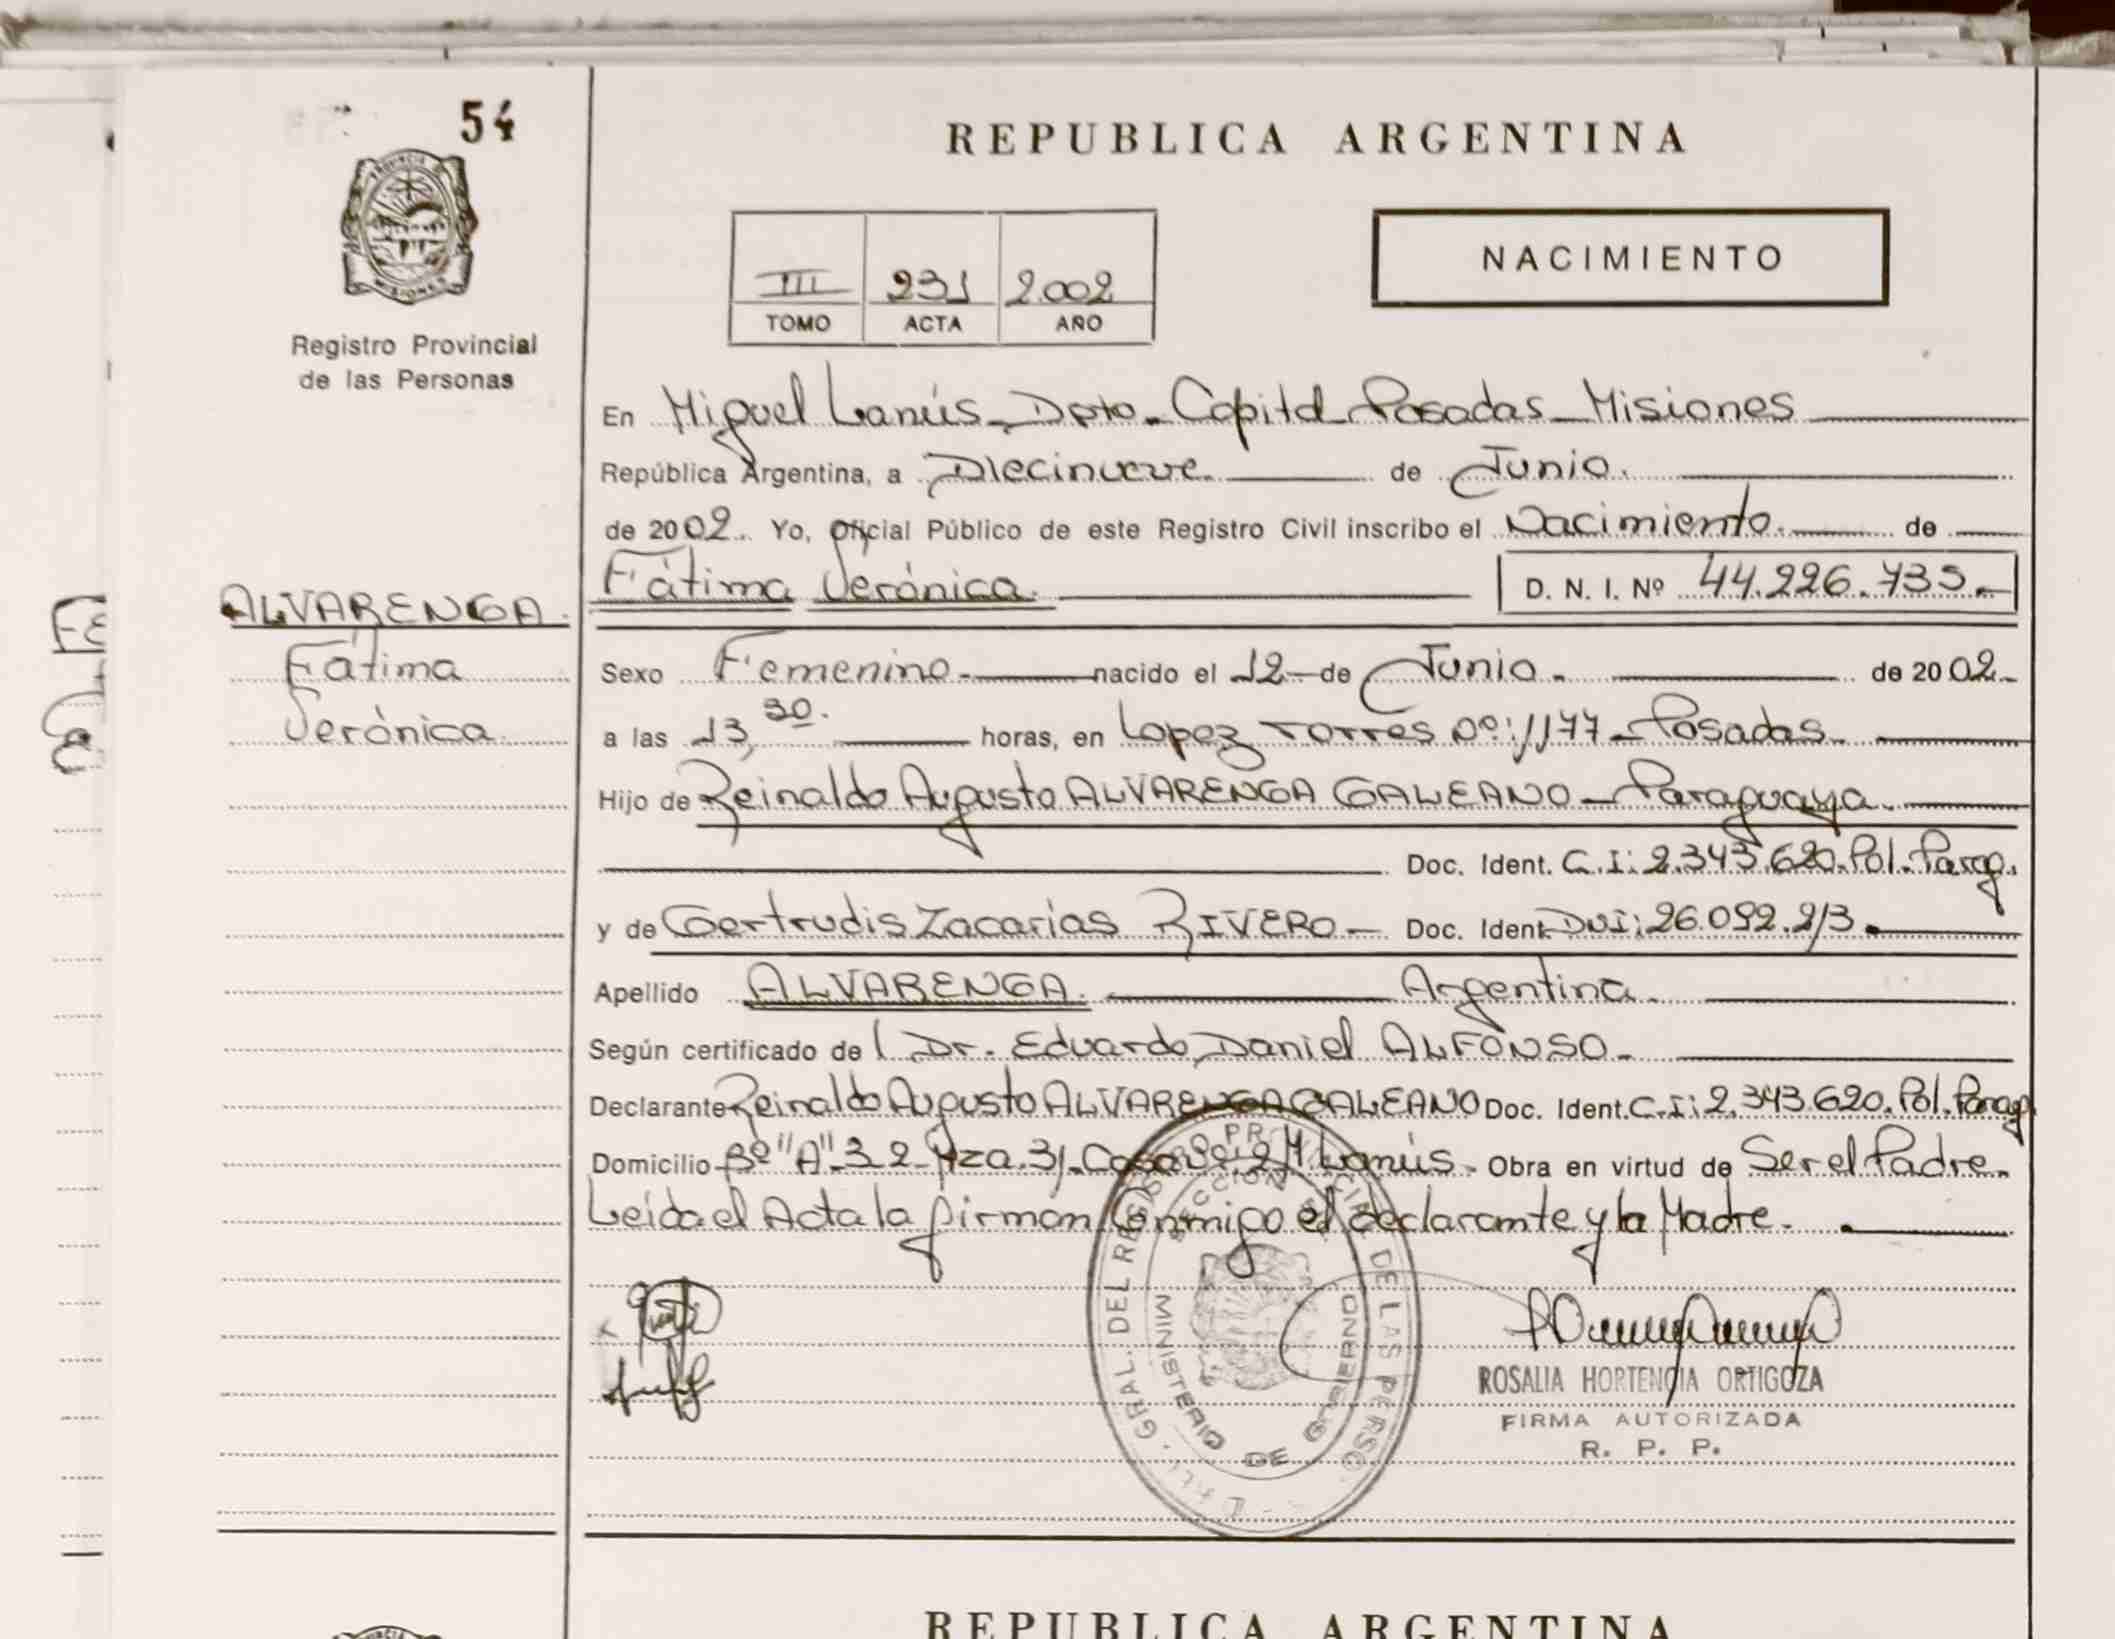 54
REPUBLICA ARGENTINA
PROVINCIA
MISIONES
NACIMIENTO
III 231 2.002
TOMO ACTA AÑO
Registro Provincial
de las Personas
En Miguel Lanús - Dpto - Capital Posadas - Misiones
República Argentina, a Diecinueve de Junio.
de 2002. Yo, Oficial Público de este Registro Civil inscribo el Nacimiento. de
Fátima Verónica. D. N. I. Nº 44.226.735.-
ALVARENGA.
Fátima
Verónica.
Sexo Femenino.- nacido el 12 de Junio. de 2002.-
a las 13,30. horas, en Lopez Torres Nº: 1177 - Posadas.
Hijo de Reinaldo Augusto ALVARENGA GALEANO - Paraguaya.
Doc. Ident. C.I: 2.343.620. Pol. Parag.
y de Gertrudis Zacarías RIVERO - Doc. Ident. DNI: 26.092.213.
Apellido ALVARENGA. Argentina.
Según certificado de Dr. Eduardo Daniel ALFONSO.
Declarante Reinaldo Augusto ALVARENGA GALEANO Doc. Ident. C.I: 2.343.620. Pol. Parag
Domicilio Bº "A" 3 2 - Mza. 31 - Casa Nº 2 M. Lanús. Obra en virtud de Ser el Padre.
Leída el Acta la firman Conmigo el declarante y la Madre.
GRAL. DEL REGISTRO PROVINCIAL DE LAS PERSO
SECCION
MINISTERIO DE GOBIERNO
ROSALIA HORTENCIA ORTIGOZA
FIRMA AUTORIZADA
R. P. P.
REPUBLICA ARGENTINA